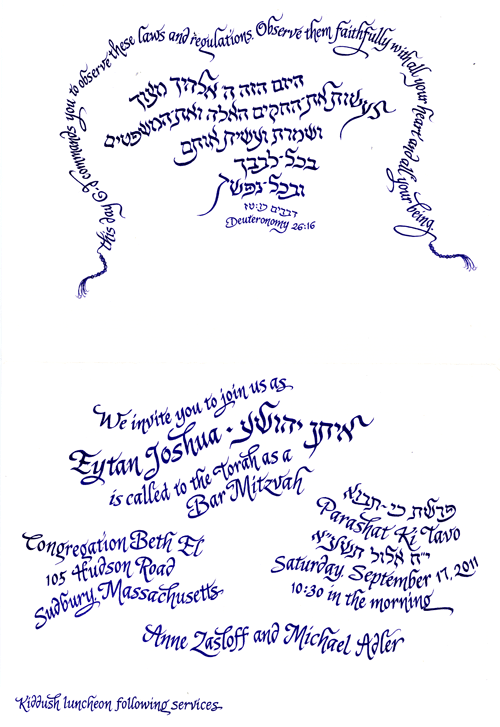 this day G-d commands you to observe these laws and regulations. Observe them faithfully with all your heart and all your being.
היום הזה ה אלהיך מצוך
לעשות את החקים האלה ואת המשפטים
ושמרת ועשית אותם
בכל-לבבך
ובכל-נפשך
דברים כו:טז
Deuteronomy 26:16
We invite you to join us as
Eytan Joshua • איתן יהושע
is called to the Torah as a
Bar Mitzvah
Congregation Beth El
105 Hudson Road
Sudbury, Massachusetts
פרשת כי-תבוא
Parashat Ki Tavo
י״ח אלול תשע״א
Saturday, September 17, 2011
10:30 in the morning
Anne Zasloff and Michael Adler
Kiddush luncheon following services